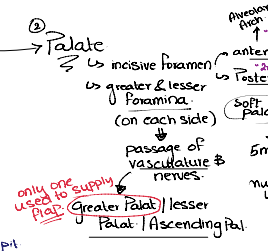 ②
Palate
↳ incisive foramen
↳ greater & lesser
foramina
(on each side)
passage of
vasculature &
nerves.
only one
used to supply
flap.
greater Palat | lesser
Palat. | Ascending Pal.
Alveolar
Arch
anter
Poster
soft
pala
5m
nu
pit